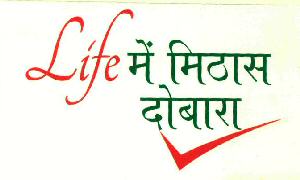 Life में मिठास
दोबारा